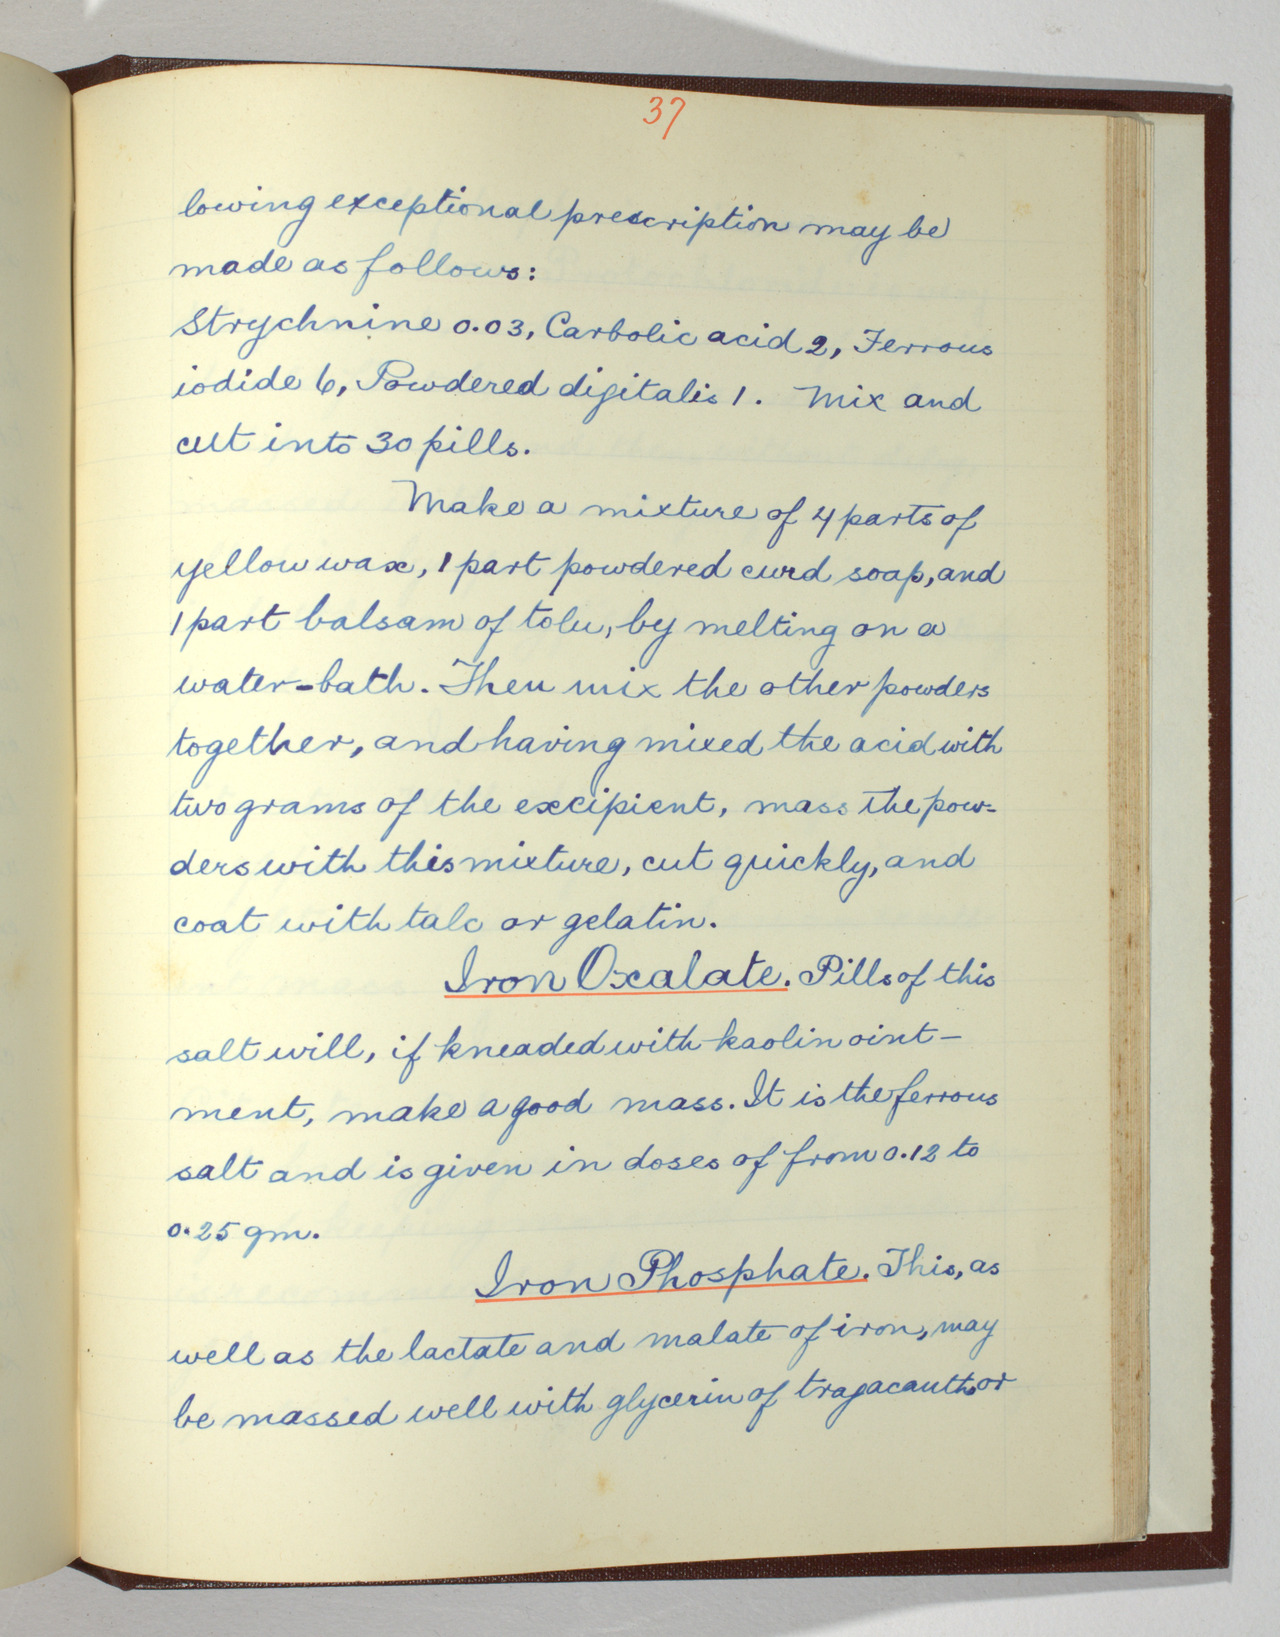 37
lowing exceptional prescription may be
made as follows:
Strychnine 0.03, Carbolic acid 2, Ferrous
iodide 6, Powdered digitalis 1. Mix and
cut into 30 pills.
Make a mixture of 4 parts of
yellow wax, 1 part powdered curd soap, and
1 part balsam of tolu, by melting on a
water-bath. Then mix the other powders
together, and having mixed the acid with
two grams of the excipient, mass the pow-
ders with this mixture, cut quickly, and
coat with talc or gelatin.
Iron Oxalate. Pills of this
salt will, if kneaded with kaolin oint-
ment, make a good mass. It is the ferrous
salt and is given in doses of from 0.12 to
0.25 gm.
Iron Phosphate. This, as
well as the lactate and malate of iron, may
be massed well with glycerin of tragacanth or